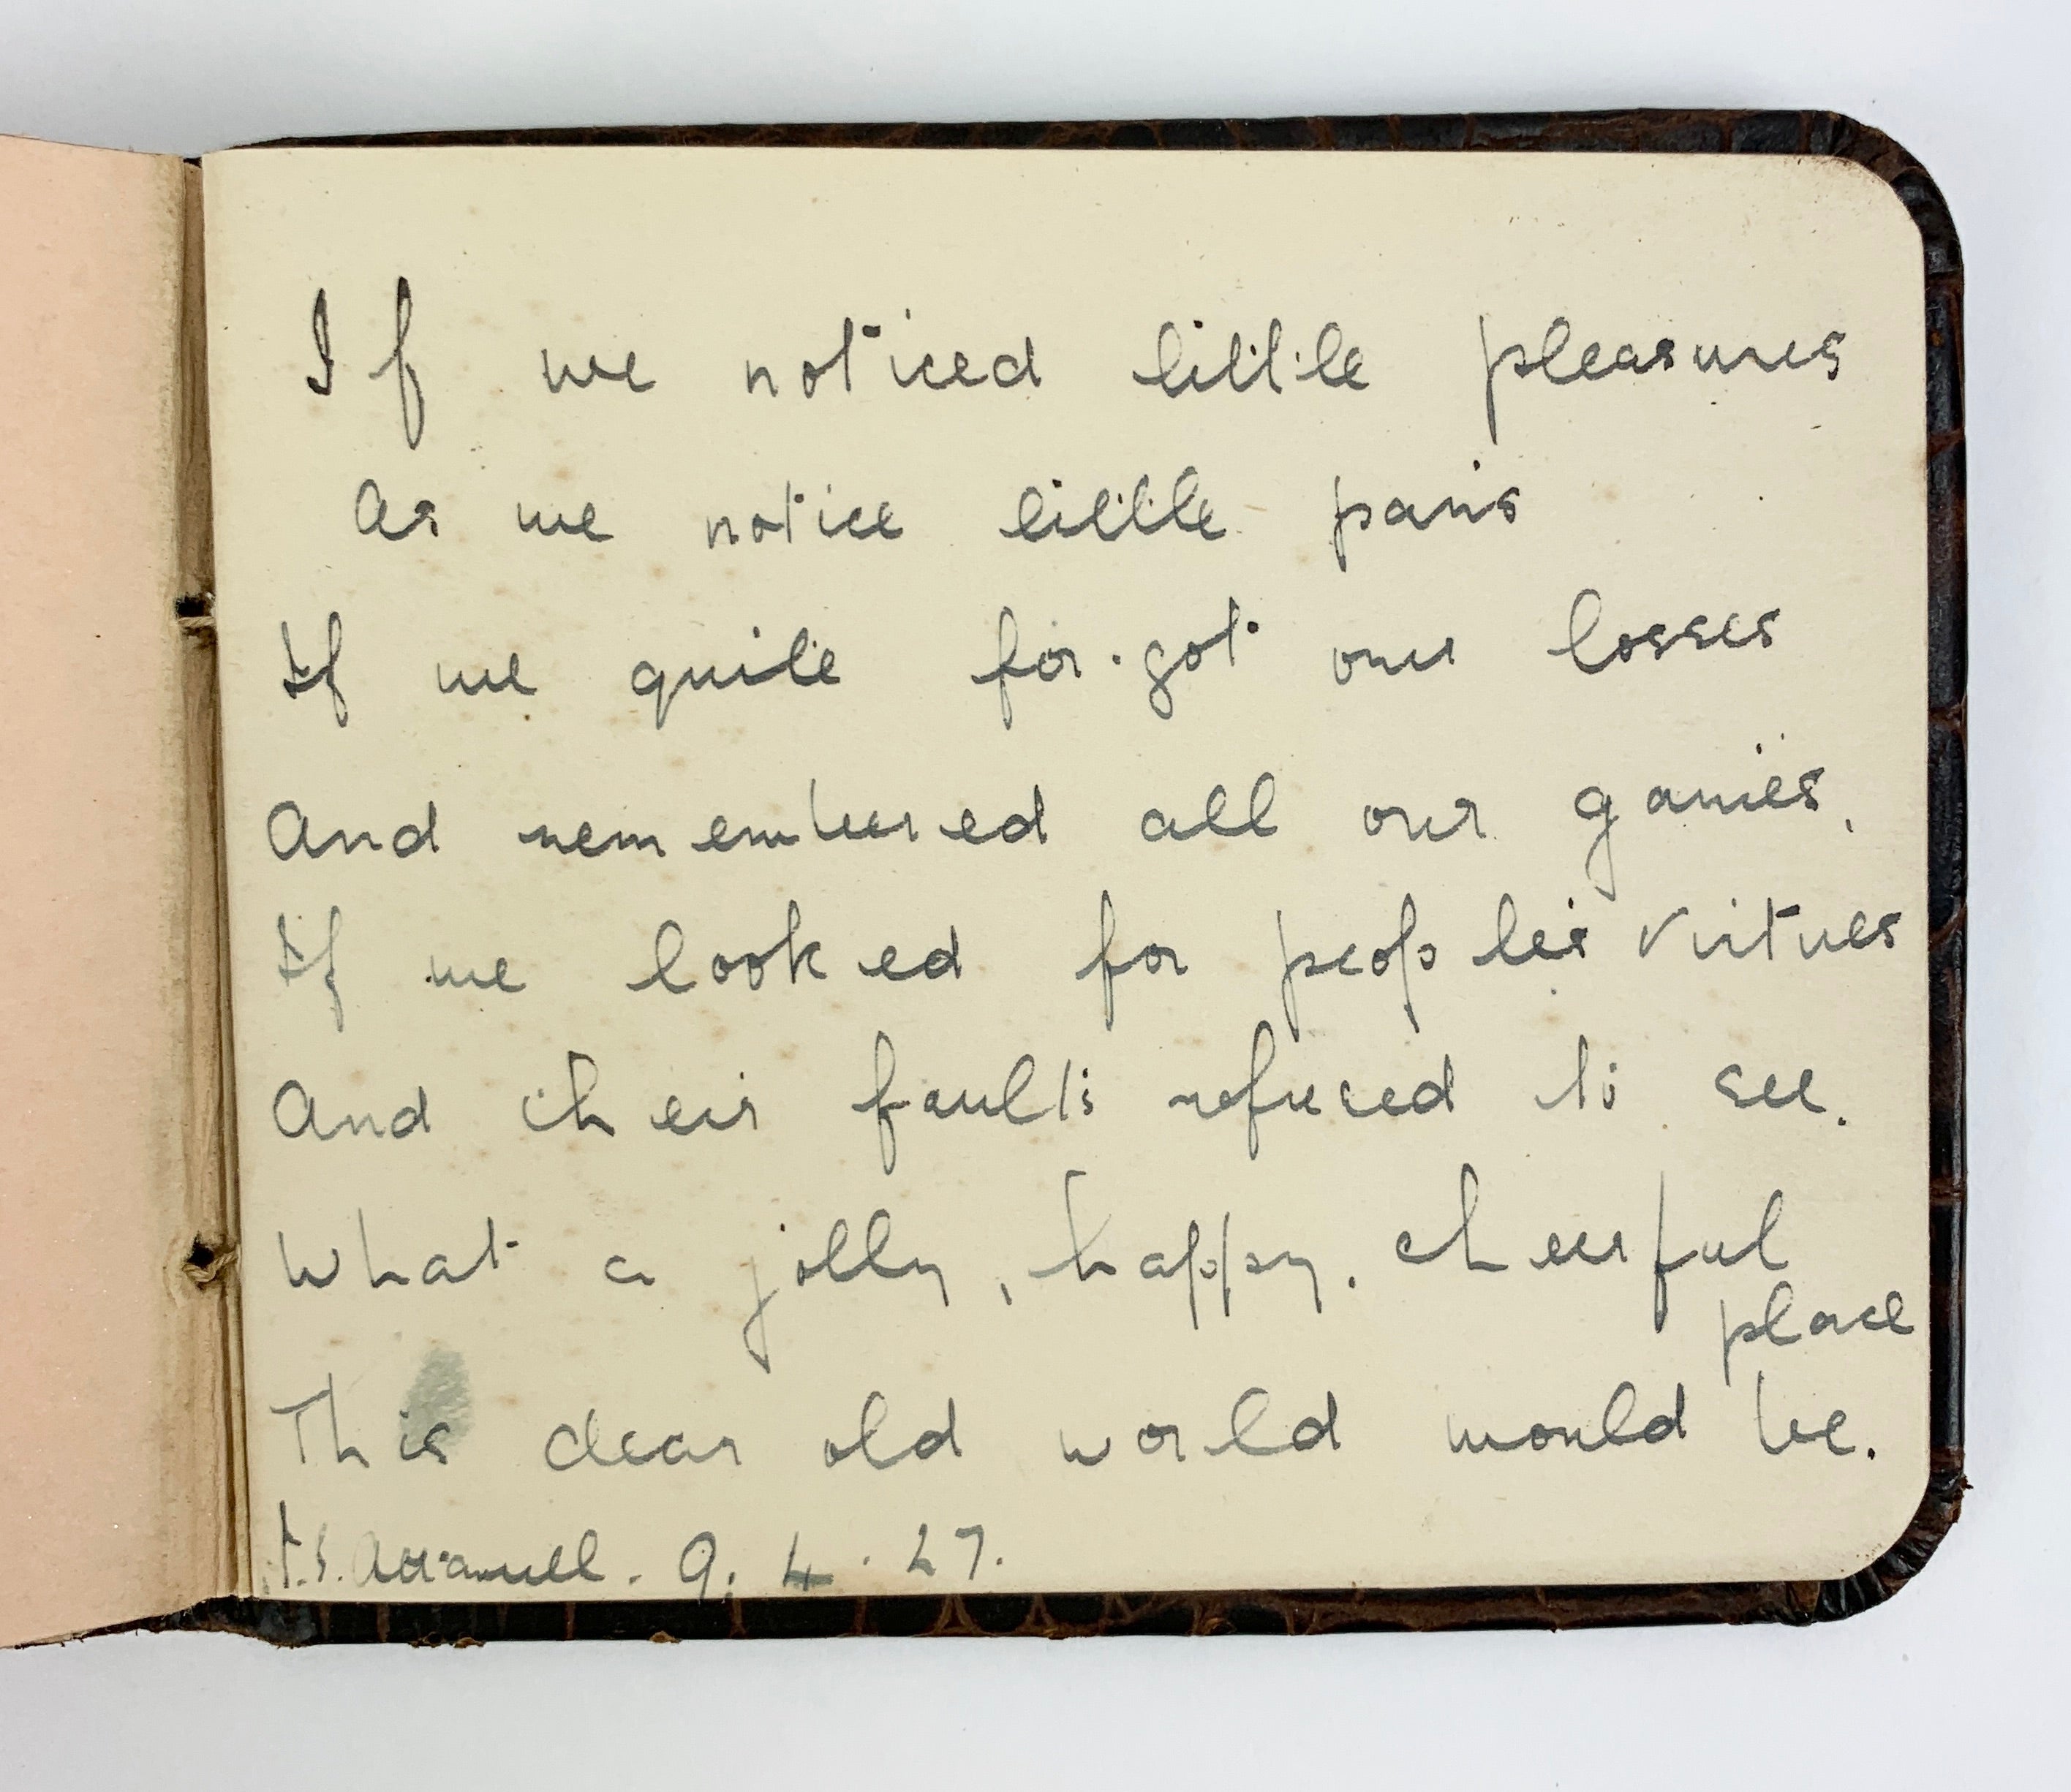 If we noticed little pleasures
As we notice little pains
If we quite for.got our losses
And remembered all our gaines,
If we looked for peoples virtues
And their faults refused to see.
What a jolly, happy, cheerful
place
This dear old world would be.
9. 4. 27.